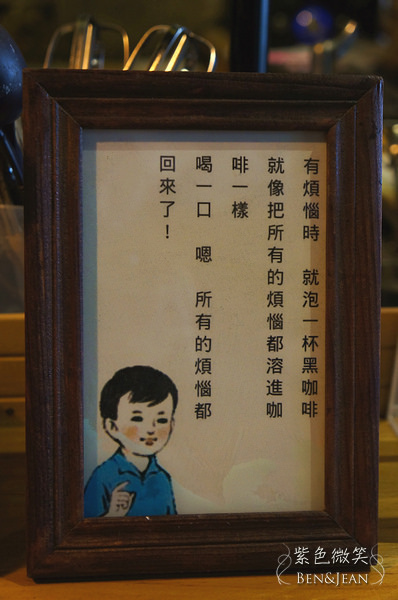 有煩惱時 就泡一杯黑咖啡
就像把所有的煩惱都溶進咖
啡一樣
喝一口 嗯 所有的煩惱都
回來了！
紫色微笑
BEN&JEAN